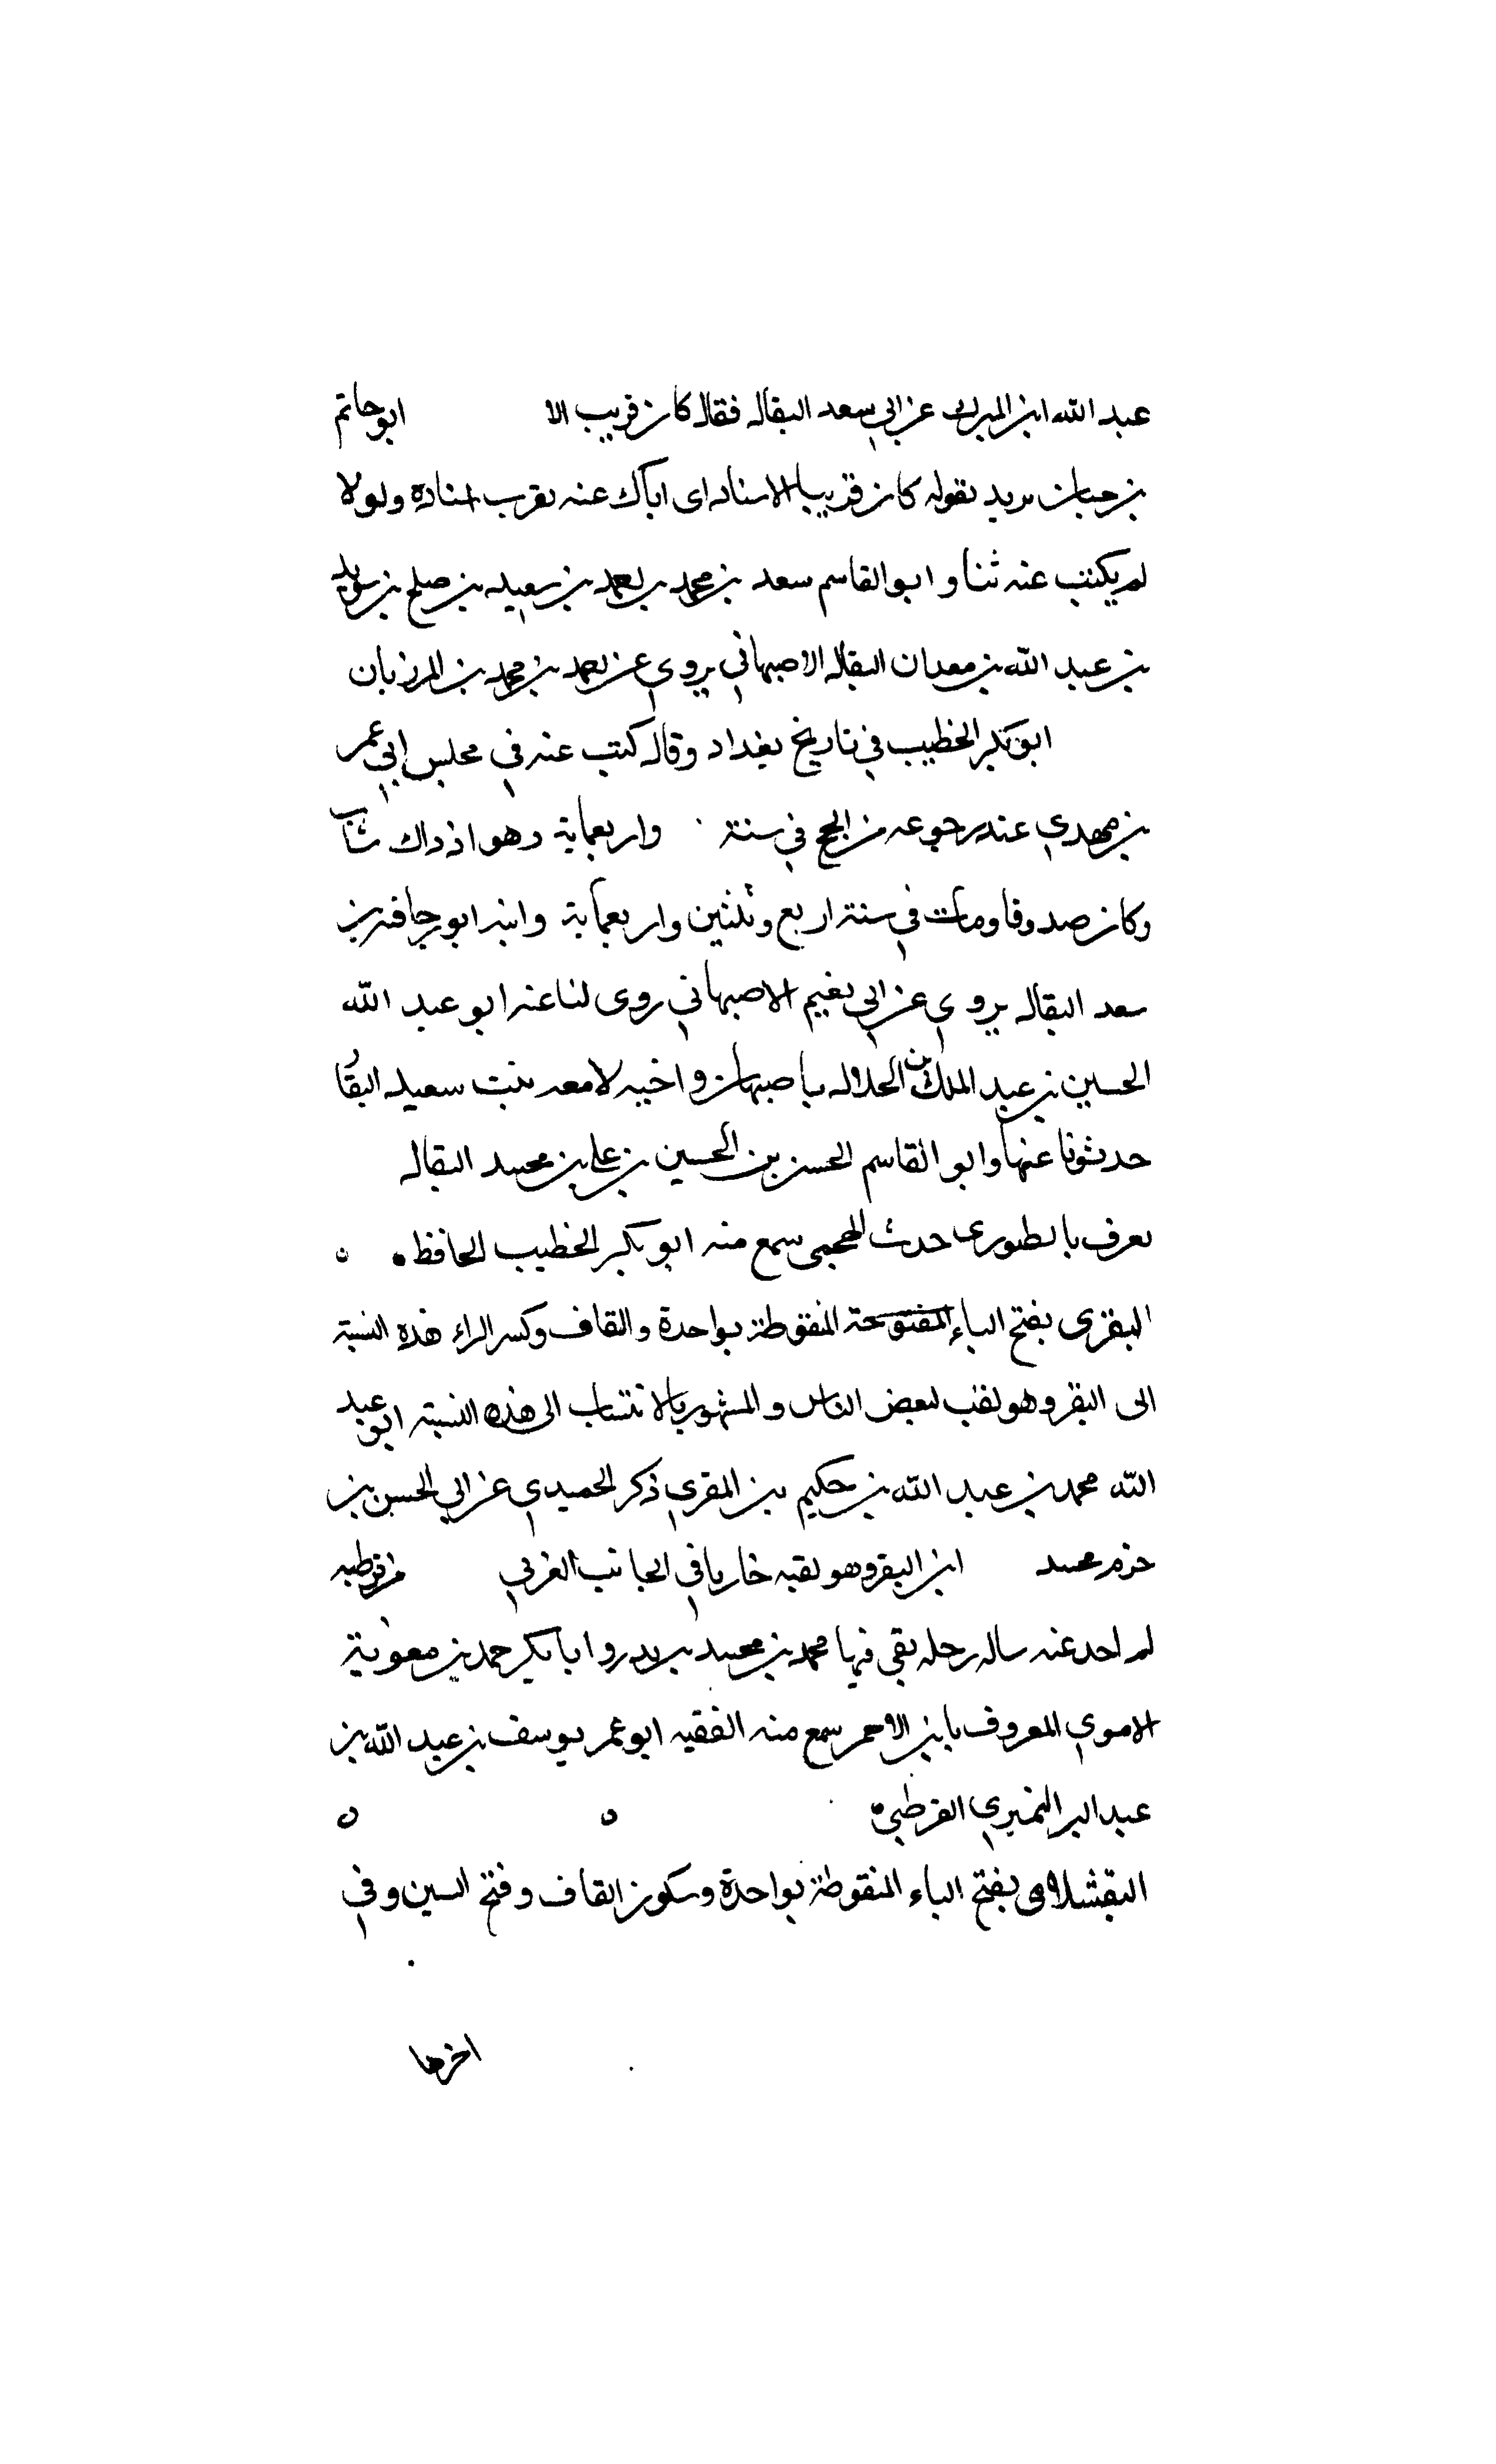 عبد الله ابن المبرك عن ابي سعد البقال فقال كان قريب الا ابو حاتم
بن حبان يريد بقوله كان قريب الاسناد اى اباك عنه بقرب اسناده ولولا
لم يكتب عنه شا و ابو القاسم سعد بن محمد بن احمد بن سعيد بن صلح بن سويد
بن عبد الله بن معدان البقال الاصبهاني يروي عن احمد بن محمد بن المرزبان
ابو بكر الخطيب في تاريخ بغداد وقال كتب عنه في مجلس ابي عمر
بن مهدي عند رجوعه من الحج في سنة واربعماية وهو اذ ذاك شاب
وكان صدوقا ومات في سنة اربع وثلثين واربعماية وابنه ابو رجا بن
سعد البقال يروي عن ابي نعيم الاصبهاني روى لنا عنه ابو عبد الله
الحسين بن عبد الملك بن الخلال باصبهان واخيه لامعه بنت سعيد البقا
حدثونا عنها وابو القاسم الحسن بن الحسين بن علي بن محمد البقال
يعرف بالطورى حدث سمع منه ابو بكر الخطيب الحافظ
البقرى بفتح الباء المفتوحة المنقوطة بواحدة والقاف وكسر الراء هذه النسبة
الى البقر وهو لقب لبعض الناس والمشهور بالانتساب الى هذه النسبة ابو عبد
الله محمد بن عبد الله بن حكيم بن المقري ذكر الحميدي عن ابي الحسن بن
حزم محمد ابن البقر وهو لقبه خاربا في الجانب الغربي من قرطبه
لم احد عنه ساله رحله بقي فيها محمد بن محمد بن بدر و ابا بكر حمد بن معوية
الاموي المعروف بابن الاحمر سمع منه الفقيه ابو عمر يوسف بن عبد الله بن
عبد البر النميري القرطبي
البقشلامى بفتح الباء المنقوطة بواحدة وسكون القاف وفتح السين وفي
اخرها